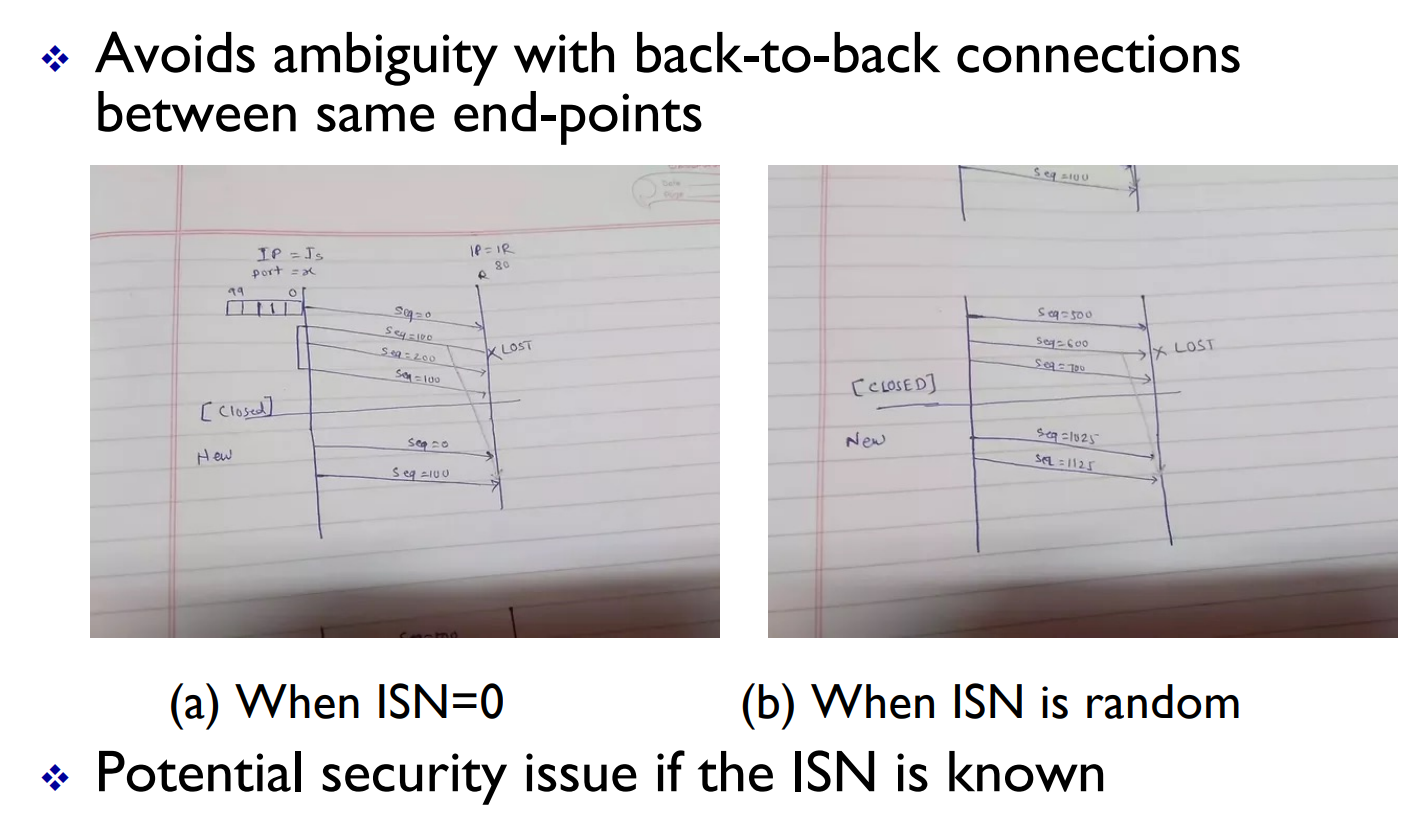 Avoids ambiguity with back-to-back connections
between same end-points
IP = Is
port = x
99 0
IP = IR
R 80
Seq=0
Seq=100
Seq=200
Seq=100
X LOST
[Closed]
New
Seq=0
Seq=100
Seq=100
Seq=500
Seq=600
Seq=700
X LOST
[CLOSED]
New
Seq=1025
Seq=1125
(a) When ISN=0
(b) When ISN is random
Potential security issue if the ISN is known